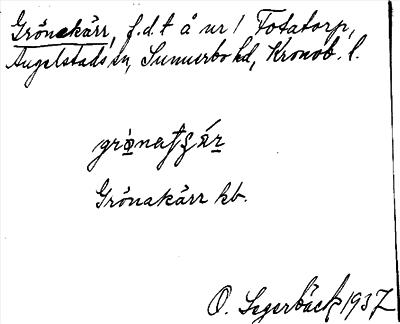 Grönakärr, f.d.t å nr 1 Totatorp,
Angelstads sn, Sunnerbo hd, Kronob. l.
Grönakärr kb.
O. Segerbäck 1937